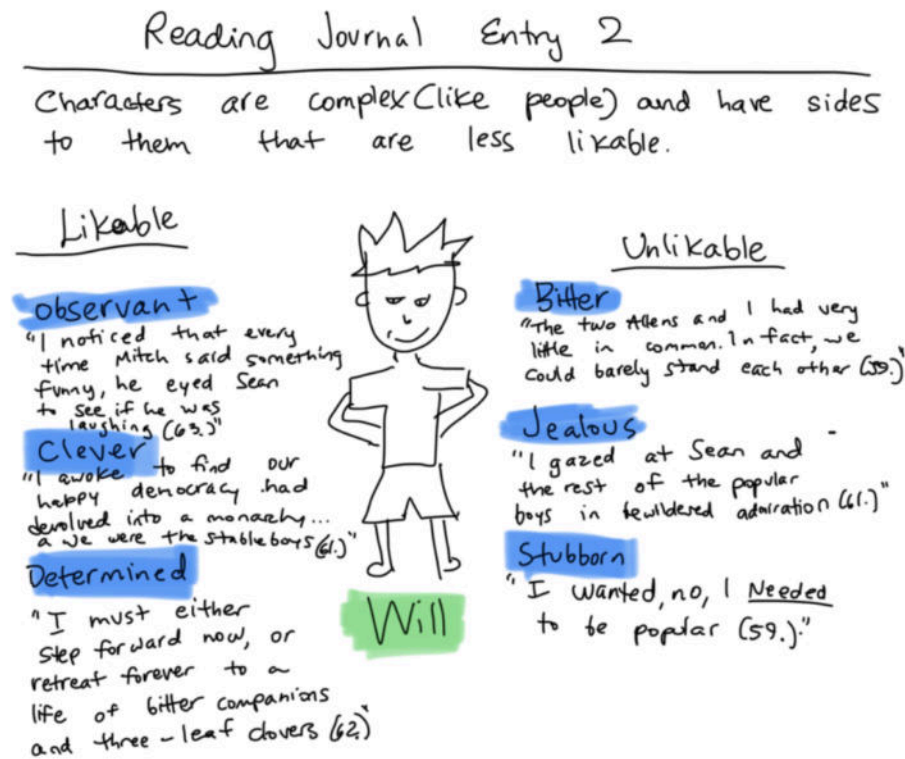 Reading Journal Entry 2
Characters are complex (like people) and have sides
to them that are less likable.
Likable
observant
"I noticed that every
time Mitch said something
funny, he eyed Sean
to see if he was
laughing (63.)"
Clever
"I awoke to find our
happy democracy had
devolved into a monarchy...
a we were the stableboys (61.)"
Determined
"I must either
step forward now, or
retreat forever to a
life of bitter companions
and three-leaf clovers (62.)"
Will
Unlikable
Bitter
"The two Allens and I had very
little in common. In fact, we
could barely stand each other (59.)"
Jealous
"I gazed at Sean and
the rest of the popular
boys in bewildered admiration (61.)"
Stubborn
"I wanted, no, I Needed
to be popular (59.)."